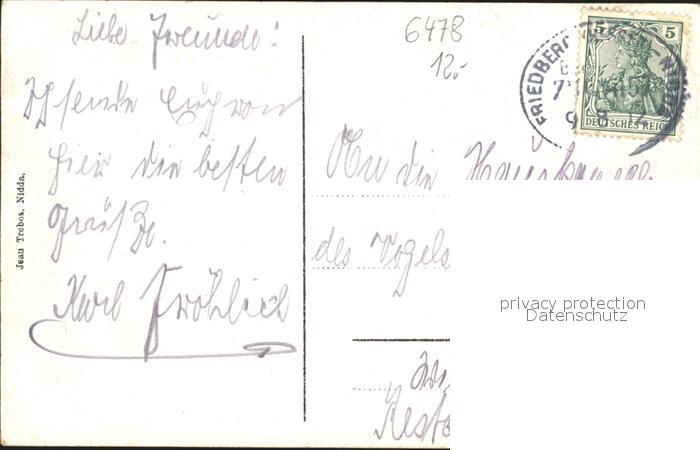 Liebe Freunde!
Ich sende Euch von
hier die besten
Grüße.
Karl Fröhlich
Jean Trebos, Nidda.
6478
12.-
FRIEDBERG
5 5
DEUTSCHES REICH
An die
des Vogels
privacy protection
Datenschutz